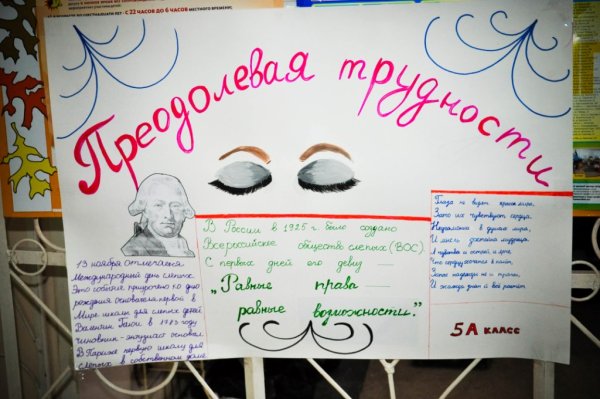 С 22 ЧАСОВ ДО 6 ЧАСОВ МЕСТНОГО ВРЕМЕНИ;
Преодолевая трудности
13 ноября отмечается
Международный день слепых.
Это событие приурочено ко дню
рождения основателя первой в
Мире школы для слепых детей
Валентин Гаюи в 1783 году
чиновник - энтузиаст основал
В Париже первую школу для
слепых в собственном доме
В России в 1925 г. было создано
Всероссийское общество слепых (ВОС)
С первых дней его девиз —
„Равные права —
равные возможности."
Глаза не видят краски мира,
Зато их чувствуют сердца.
И мысль достойна мудреца.
И чувства и
5А КЛАСС